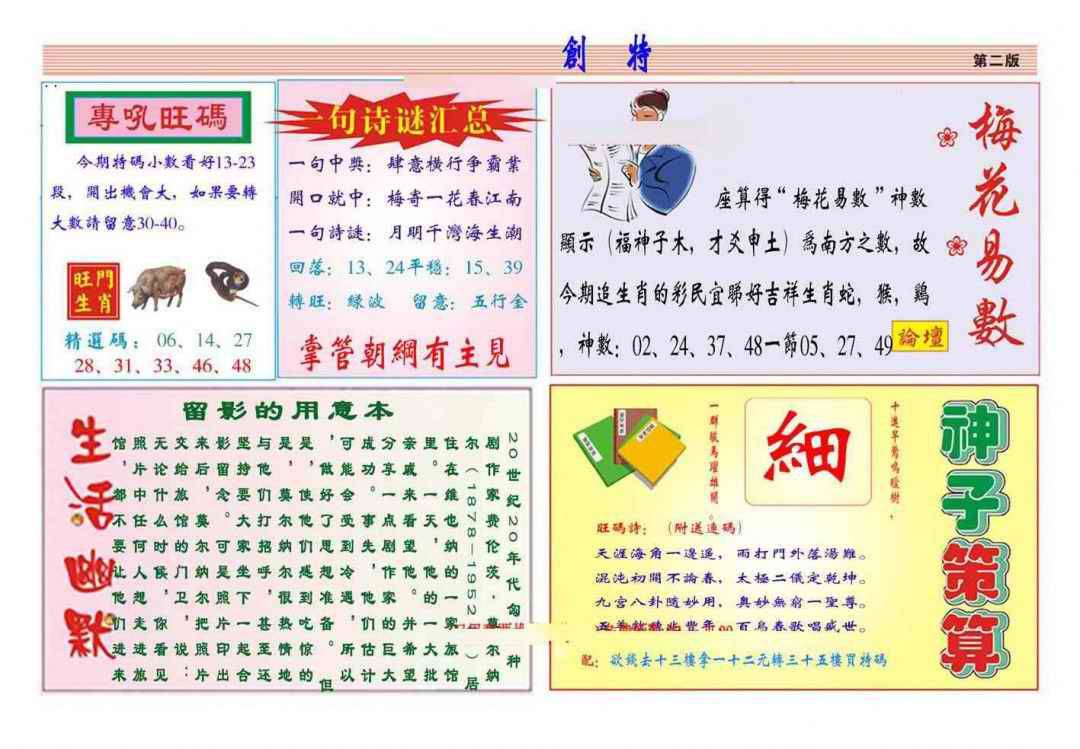 創 特
第二版
專吼旺碼
今期特碼小數看好13-23
段，開出機會大，如果要轉
大數請留意30-40。
旺門
生肖
精選碼：06、14、27
28、31、33、46、48
一句诗谜汇总
一句中奬：肆意橫行争霸業
開口就中：梅寄一花春江南
一句詩謎：月明千灣海生潮
回落：13、24平穩：15、39
轉旺：緑波 留意：五行金
掌管朝綱有主見
梅花易數
座算得“梅花易數”神數
顯示（福神子木，才爻申土）爲南方之數，故
今期追生肖的彩民宜睇好吉祥生肖蛇，猴，鷄
，神數：02、24、37、48一節05、27、49
論壇
生活幽默
留影的用意本
20世纪20年代匈
剧作家费伦茨·莫尔纳
尔（1878—1952）居
住在维也纳的一家旅馆
里。一天，他的一大批
亲戚来看望他，并希望
分享一点剧作家的巨大
成功。事先他们估计
可能会受到冷遇，所以
，做好了思想准备。但
是，使他们感到吃惊的
是，莫尔纳很热情地
与他们打招呼，甚至还
坚持要大家坐下一起合
影留念。可是照片印出
来后，莫尔纳把照片
交给旅馆的门卫，说：
无论什么时候，你看见
照片中任何人想走进旅
馆，都不要让他们进来
神子策算
十進早鶯鳴暖樹，
細
一群駿馬躍雄關。
旺碼詩：（附送連碼）
天涯海角一邊遥，雨打門外落湯雞。
混沌初開不論春，太極二儀定乾坤。
九宫八卦隨妙用，奥妙無窮一聖尊。
百鳥春歌唱盛世。
配：欲錢去十三樓拿一十二元轉三十五樓買特碼